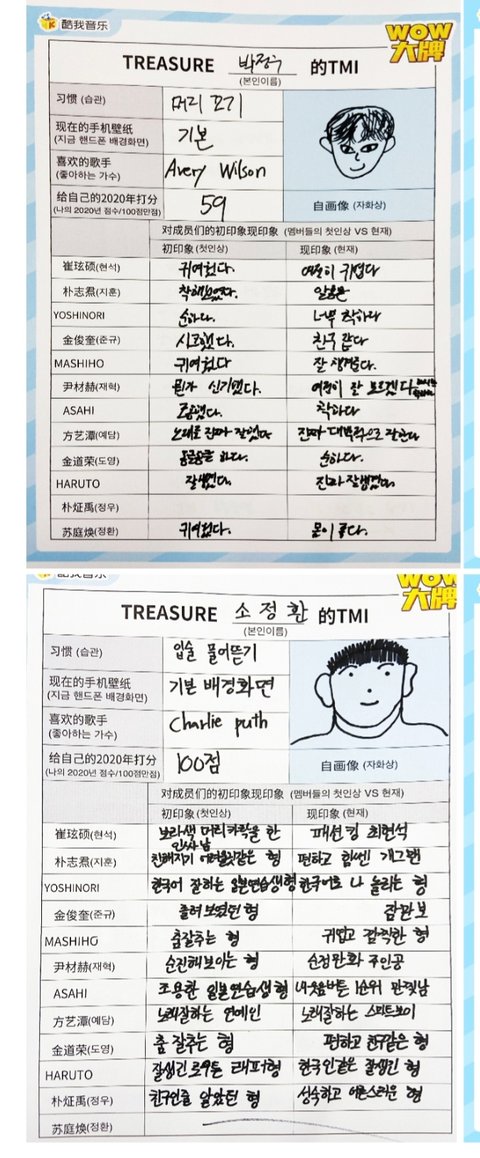 酷我音乐
WOW
大牌
TREASURE 박정우 的TMI
(본인이름)
习惯 (습관)
머리 꼬기
现在的手机壁纸
(지금 핸드폰 배경화면)
기본
喜欢的歌手
(좋아하는 가수)
Avery Wilson
给自己的2020年打分
(나의 2020년 점수/100점만점)
59
自画像 (자화상)
对成员们的初印象现印象 (멤버들의 첫인상 VS 현재)
初印象 (첫인상) 现印象 (현재)
崔玹硕(현석) 귀여웠다. 여전히 귀엽다
朴志焄(지훈) 착해보였다.
YOSHINORI 순하다. 너무 착하다
金俊奎(준규) 시크했다. 친구 같다
MASHIHO 귀여웠다 잘 챙겨준다.
尹材赫(재혁) 뭔가 신기했다. 여전히 잘 모르겠다
ASAHI 조용했다. 착하다
方艺潭(예담) 노래를 진짜 잘했다 진짜 대박적으로 잘한다
金道荣(도영) 꼼꼼하다. 순하다.
HARUTO 잘생겼다. 진짜 잘생겼다.
朴炡禹(정우)
苏庭焕(정환) 귀여웠다. 몸이 좋다.
酷我音乐
WOW
大牌
TREASURE 소정환 的TMI
(본인이름)
习惯 (습관)
입술 물어뜯기
现在的手机壁纸
(지금 핸드폰 배경화면)
기본 배경화면
喜欢的歌手
(좋아하는 가수)
Charlie puth
给自己的2020年打分
(나의 2020년 점수/100점만점)
100점
自画像 (자화상)
对成员们的初印象现印象 (멤버들의 첫인상 VS 현재)
初印象 (첫인상) 现印象 (현재)
崔玹硕(현석) 보라색 머리카락을 한 패션킹 최현석
朴志焄(지훈) 친해지기 어려울것같은 형 편하고 힘쎈 개그맨
YOSHINORI 한국어 잘하는 일본연습생형 한국어로 나 놀리는 형
金俊奎(준규) 졸려 보였던 형 잠만보
MASHIHO 춤잘추는 형 귀엽고 깜찍한 형
尹材赫(재혁) 순진해보이는 형 순정만화 주인공
ASAHI 조용한 일본연습생 형 내 웃음버튼 1순위
方艺潭(예담) 노래잘하는 연예인 노래잘하는 스미트보이
金道荣(도영) 춤 잘추는 형 편하고 친구같은 형
HARUTO 잘생긴 로우톤 래퍼형 한국인같은 잘생긴 형
朴炡禹(정우) 친구인줄 알았던 형 성숙하고 어른스러운 형
苏庭焕(정환)